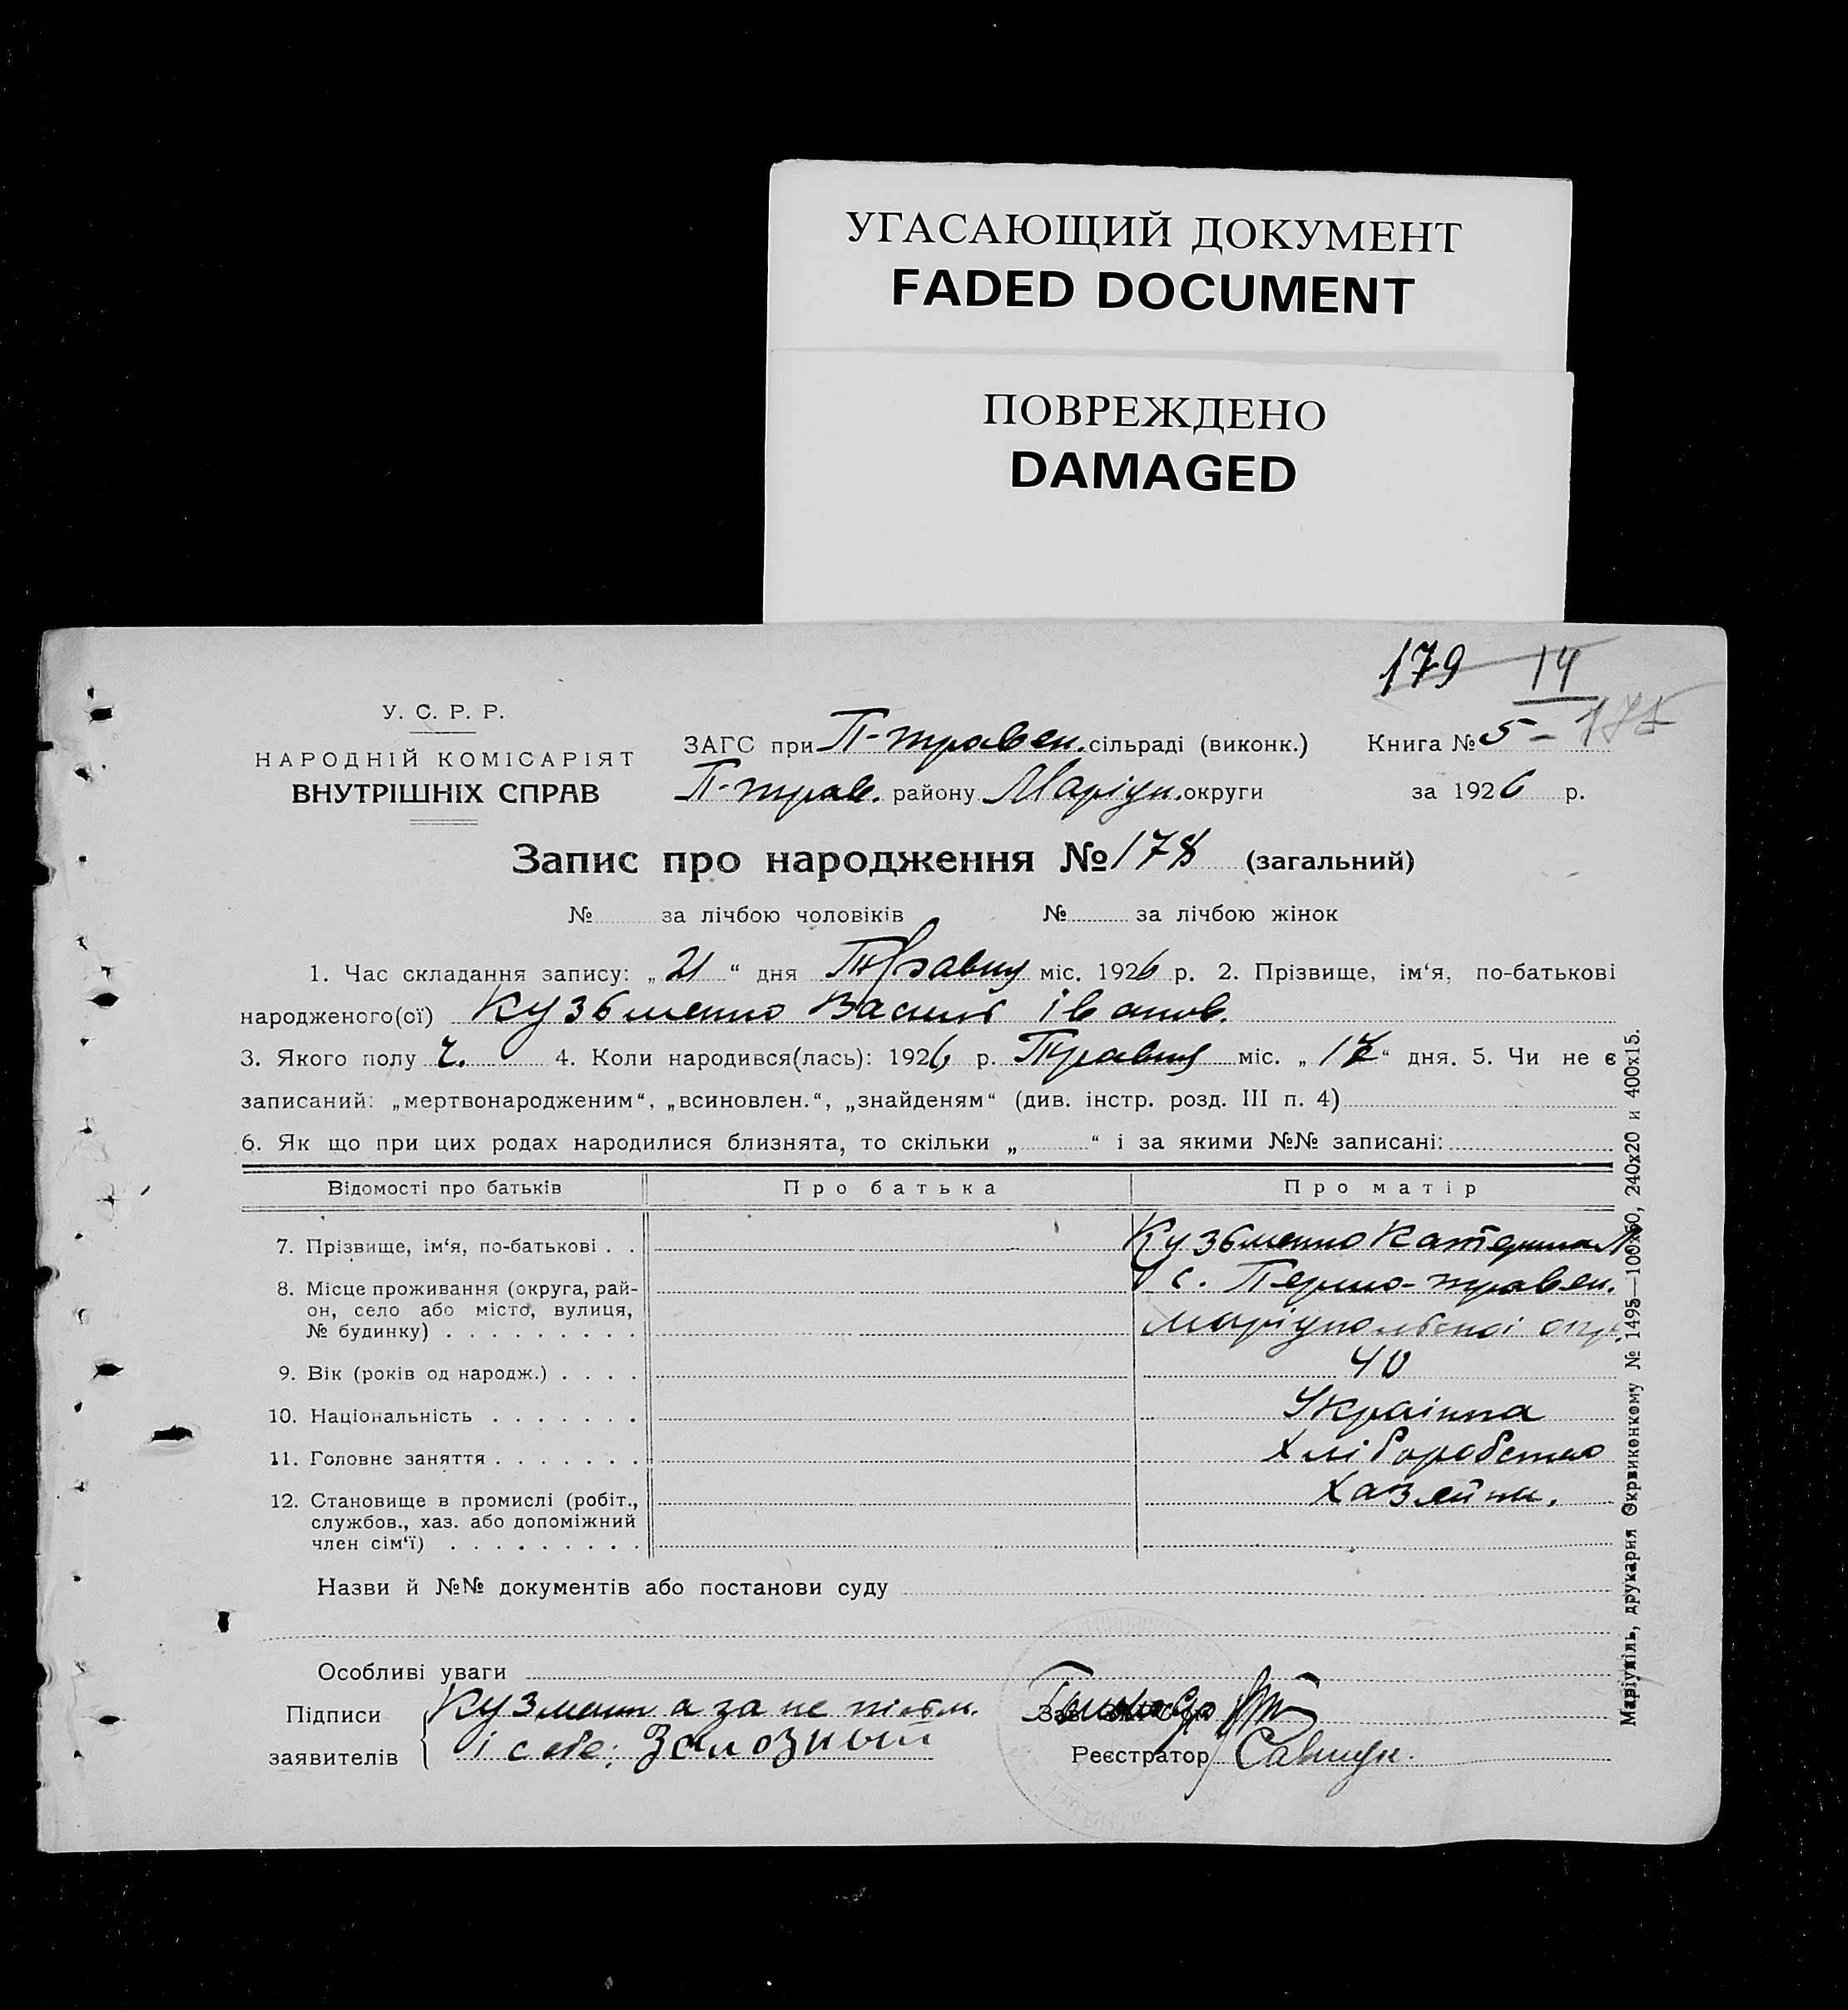 УГАСАЮЩИЙ ДОКУМЕНТ
FADED DOCUMENT
ПОВРЕЖДЕНО
DAMAGED
179 14
У. С. Р. Р.
НАРОДНІЙ КОМІСАРІЯТ
ВНУТРІШНІХ СПРАВ
ЗАГС при П-травен. сільраді (виконк.) Книга № 5 - 175
П-трав. району Маріуп. округи за 1926 р.
Запис про народження № 178 (загальний)
№ за лічбою чоловіків № за лічбою жінок
1. Час складання запису: „ 21 “ дня Травня міс. 1926 р. 2. Прізвище, ім‘я, по-батькові
народженого(ої) Кузьменко Василь Іванов.
3. Якого полу ч. 4. Коли народився(лась): 1926 р. Травня міс. „ 17 “ дня. 5. Чи не є
записаний: „мертвонародженим“, „всиновлен.“, „знайденям“ (див. інстр. розд. III п. 4)
6. Як що при цих родах народилися близнята, то скільки „ “ і за якими №№ записані:
Відомості про батьків Про батька Про матір
7. Прізвище, ім‘я, по-батькові . . Кузьменко Катерина
8. Місце проживання (округа, рай-
он, село або місто, вулиця,
№ будинку) . . . . . . . . .
с. Першо-травен.
Маріупольської окр.
9. Вік (років од народж.) . . . . 40
10. Національність . . . . . . . Українка
11. Головне заняття . . . . . . . Хліборобство
12. Становище в промислі (робіт.,
службов., хаз. або допоміжний
член сім‘ї) . . . . . . . . .
Хазяйка.
Назви й №№ документів або постанови суду
Особливі уваги
Підписи
заявителів
Кузменк а за не письм.
і себе: Залозный
Реєстратор Савчук.
Маріупіль, друкарня Окрвиконкому № 1495—100х60, 240х20 и 400х15.